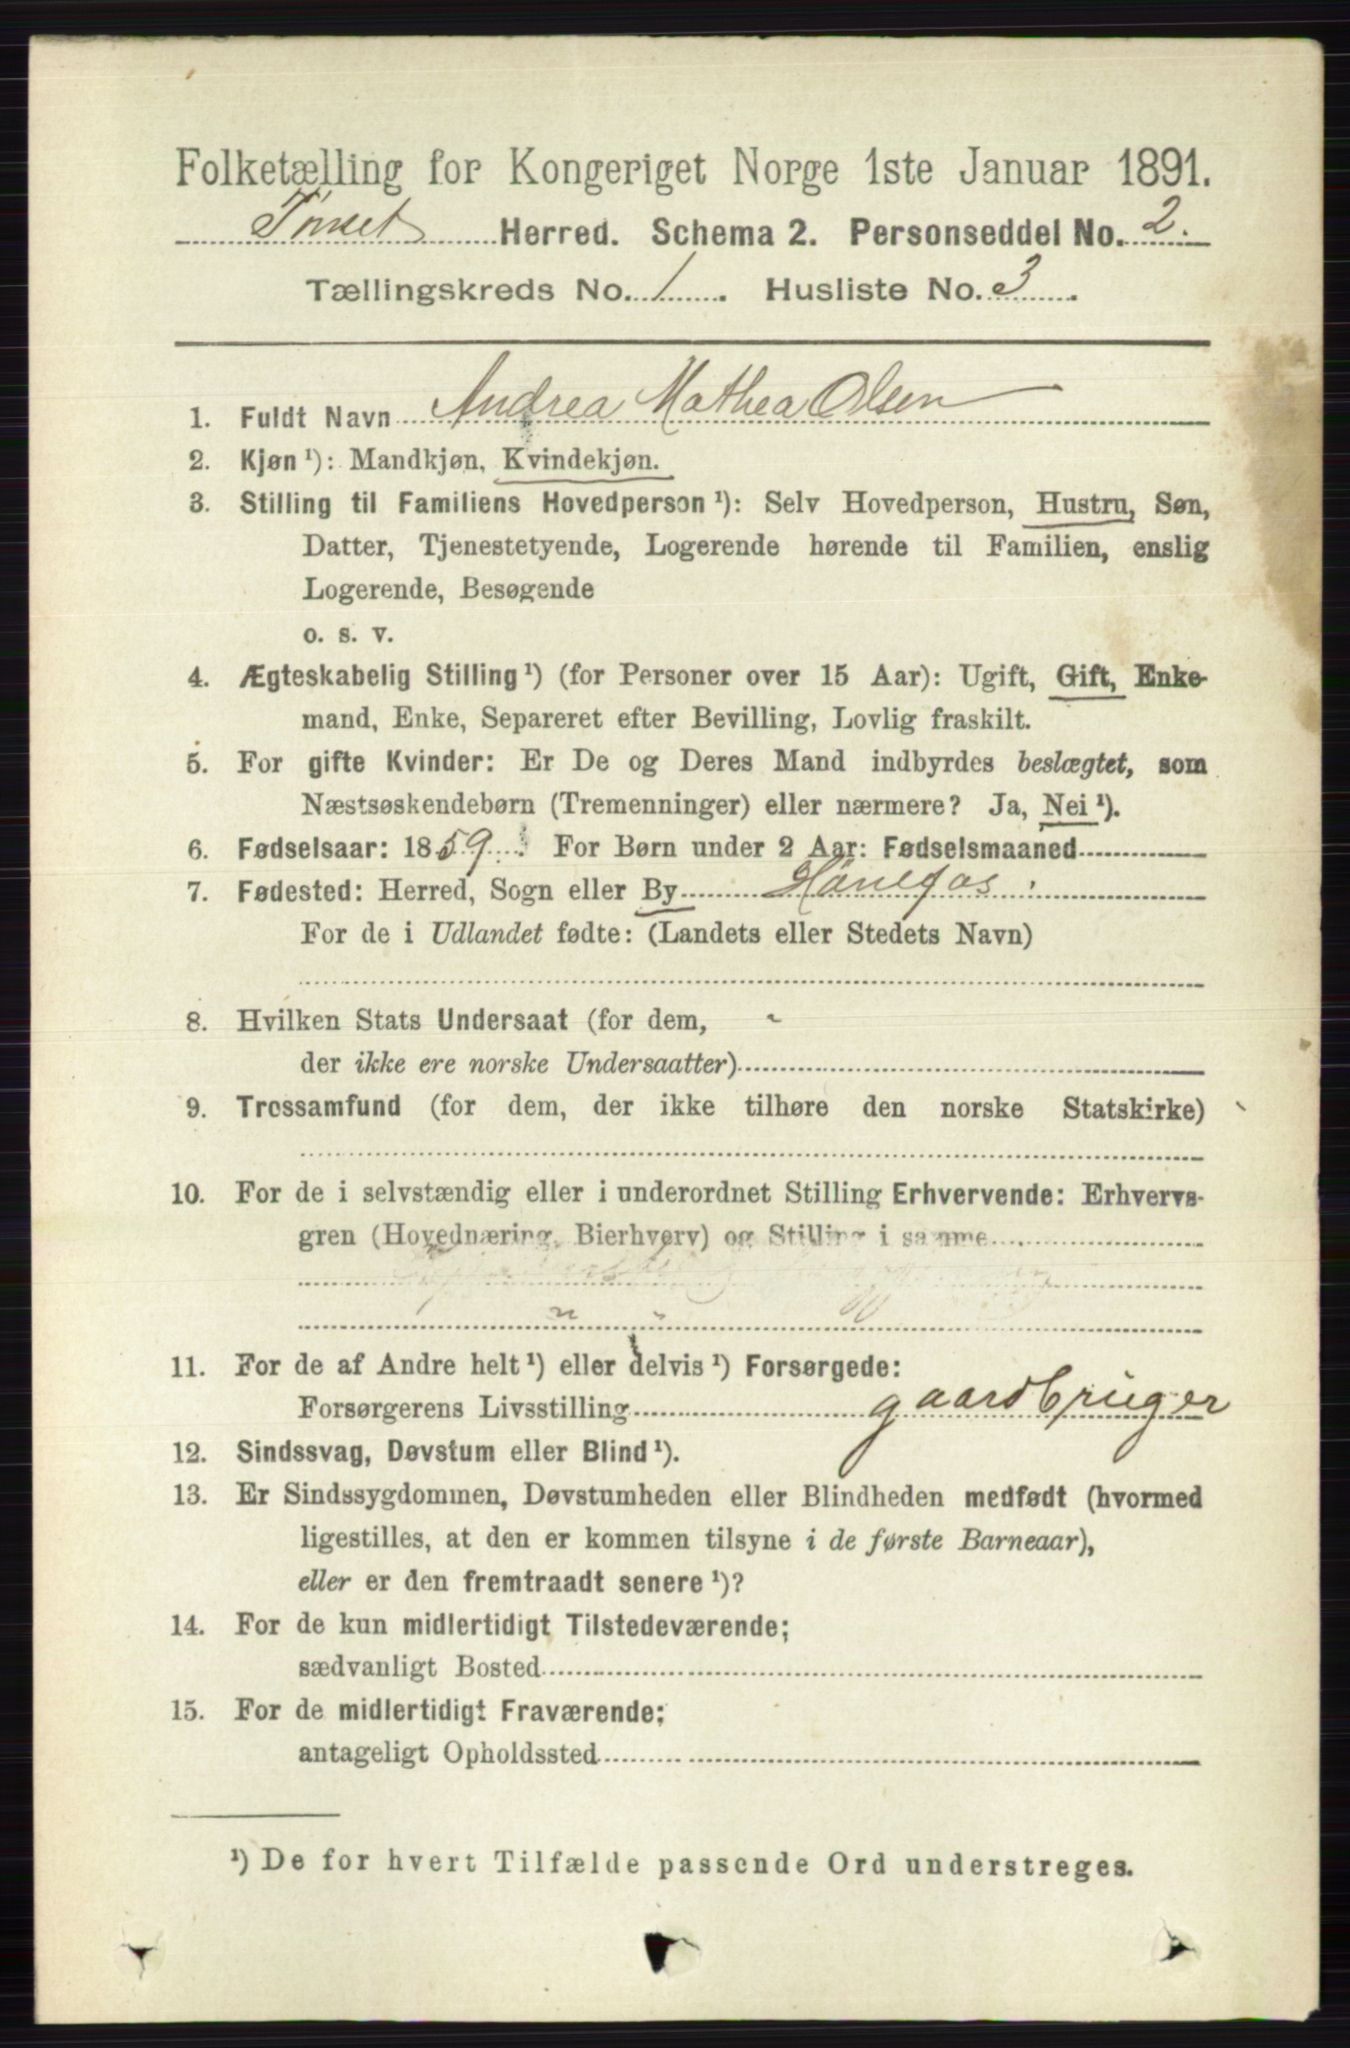 Folketælling for Kongeriget Norge 1ste Januar 1891.
Tønset Herred. Schema 2. Personseddel No. 2.
Tællingskreds No. 1. Husliste No. 3.
1. Fuldt Navn Andrea Mathea Olsen
2. Kjøn ¹): Mandkjøn, Kvindekjøn.
3. Stilling til Familiens Hovedperson ¹): Selv Hovedperson, Hustru, Søn,
Datter, Tjenestetyende, Logerende hørende til Familien, enslig
Logerende, Besøgende
o. s. v.
4. Ægteskabelig Stilling ¹) (for Personer over 15 Aar): Ugift, Gift, Enke-
mand, Enke, Separeret efter Bevilling, Lovlig fraskilt.
5. For gifte Kvinder: Er De og Deres Mand indbyrdes beslægtet, som
Næstsøskendebørn (Tremenninger) eller nærmere? Ja, Nei ¹).
6. Fødselsaar: 1859. For Børn under 2 Aar: Fødselsmaaned
7. Fødested: Herred, Sogn eller By Hönefos
For de i Udlandet fødte: (Landets eller Stedets Navn)
8. Hvilken Stats Undersaat (for dem,
der ikke ere norske Undersaatter)
9. Trossamfund (for dem, der ikke tilhøre den norske Statskirke)
10. For de i selvstændig eller i underordnet Stilling Erhvervende: Erhvervs-
gren (Hovednæring, Bierhverv) og Stilling i samme
11. For de af Andre helt ¹) eller delvis ¹) Forsørgede:
Forsørgerens Livsstilling gaardbruger
12. Sindssvag, Døvstum eller Blind ¹).
13. Er Sindssygdommen, Døvstumheden eller Blindheden medfødt (hvormed
ligestilles, at den er kommen tilsyne i de første Barneaar),
eller er den fremtraadt senere ¹)?
14. For de kun midlertidigt Tilstedeværende;
sædvanligt Bosted
15. For de midlertidigt Fraværende;
antageligt Opholdssted
¹) De for hvert Tilfælde passende Ord understreges.